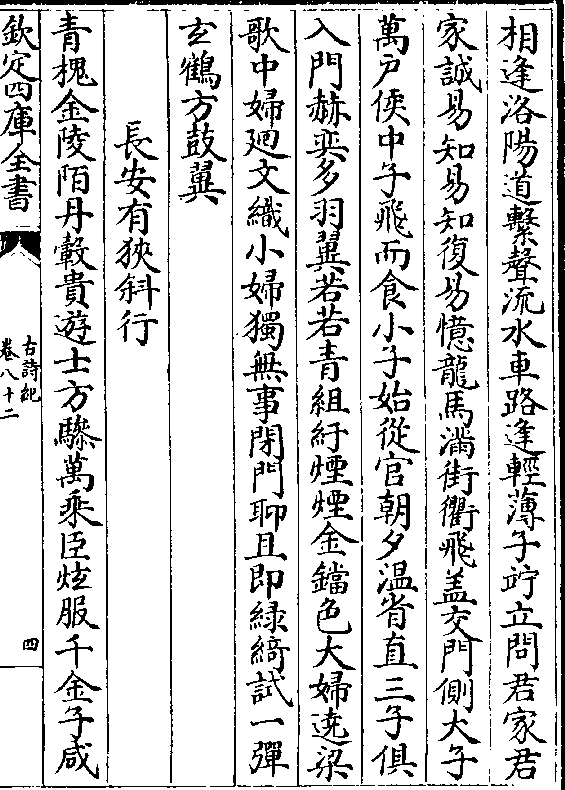 相逢洛陽道繫聲流水車路逢輕薄子竚立問君家君
家誠易知易知復易憶龍馬滿街衢飛盖交門側大子
萬戸侯中子飛而食小子始從官朝夕温省直三子俱
入門赫奕多羽翼若若青組紆煙煙金鐺色大婦遶梁
歌中婦廻文織小婦獨無事閉門聊且即緑綺試一彈
玄鶴方鼓翼
長安有狹斜行
青槐金陵陌丹轂貴遊士方驂萬乘臣炫服千金子咸
欽定四庫全書
古詩紀
卷八十二
四